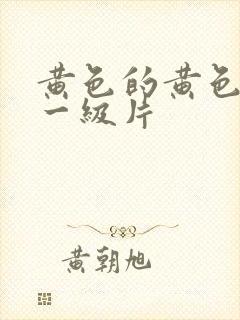 黄色的黄色
一级片
黄朝旭